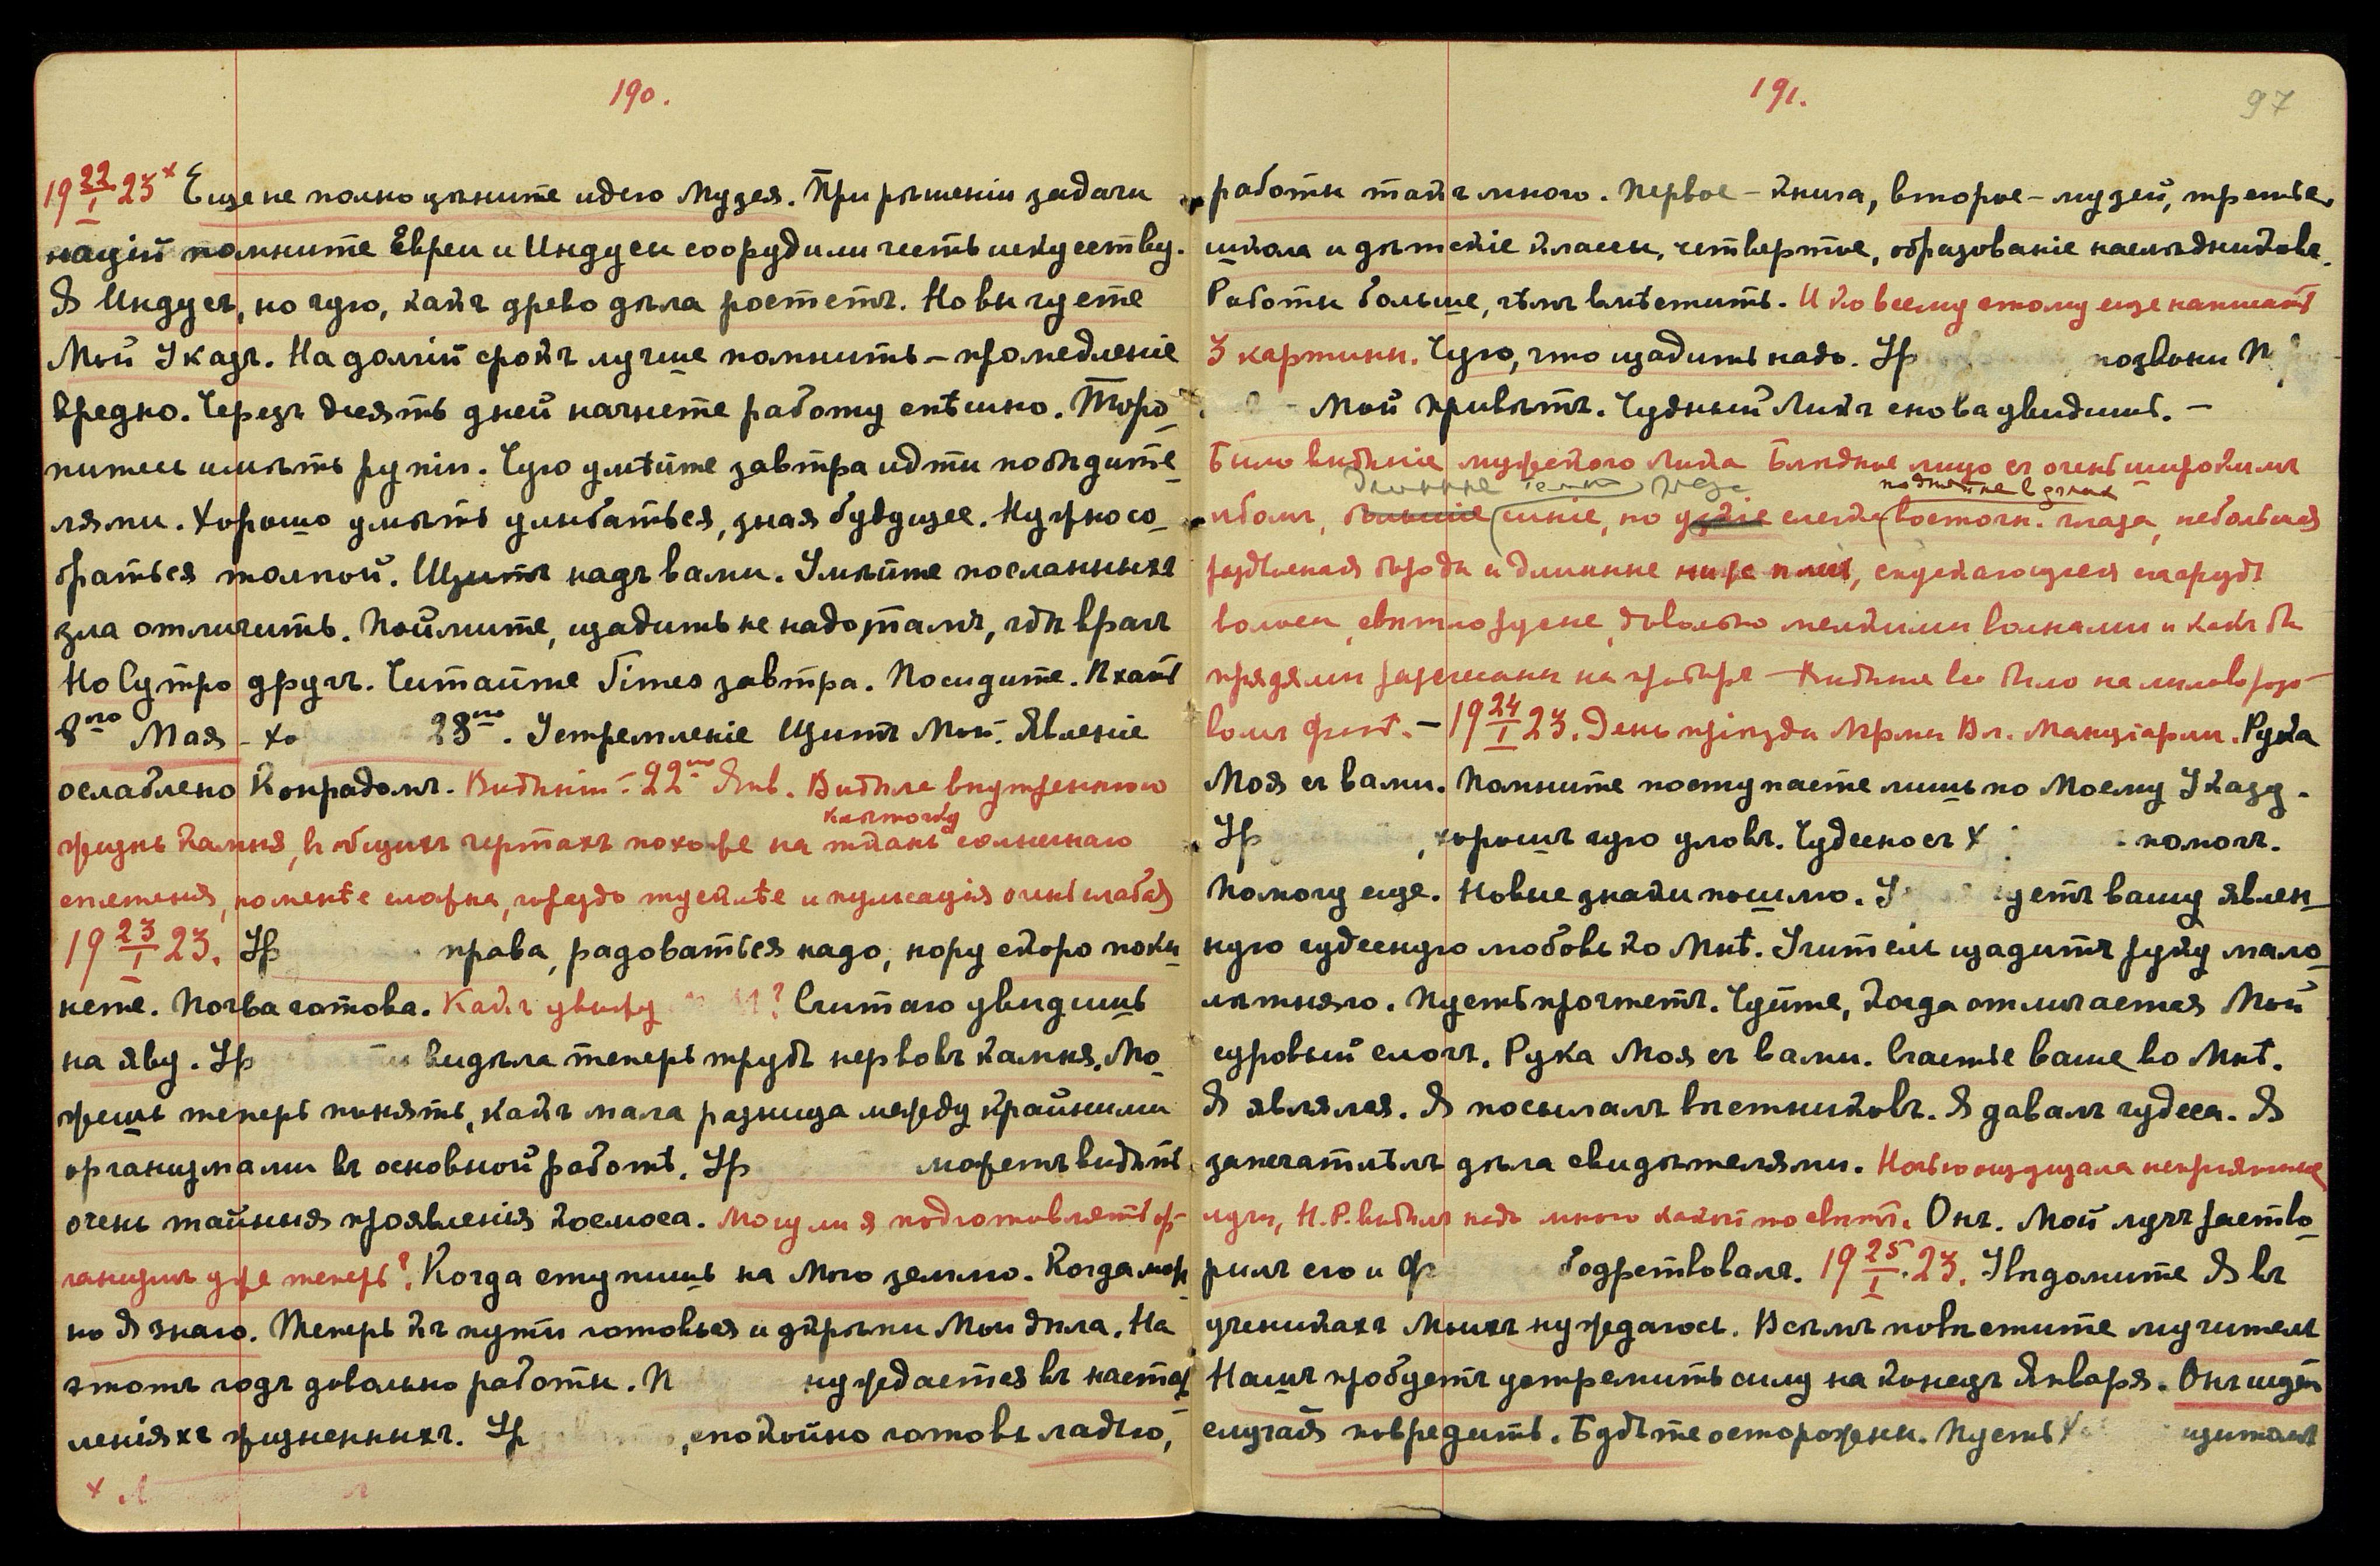 190.
19 22/I 23 x Еще не полно цѣните идею Музея. При рѣшеніи задачи
націй помните Евреи и Индусы соорудили честь искусству.
Я Индусъ, но чую, какъ древо дѣла ростетъ. Но вы чуете
Мой Указъ. На долгій срокъ лучше помнить – промедленіе
вредно. Черезъ десять дней начнете работу спѣшно. Торо-
питесь имѣть рупіи. Чую умѣйте завтра идти побѣдите-
лями. Хорошо умѣть улыбаться, зная будущее. Нужно со-
браться толпой. Щитъ надъ вами. Умѣйте посланныхъ
зла отличить. Поймите, щадить не надо, тамъ, гдѣ врагъ
Но Сутро другъ. Читайте Times завтра. Посидите. Пхать
8го Мая – хо 28го. Устремленіе Щитъ Мой. Явленіе
ослаблено Конрадомъ. Видѣніе – 22го Янв. Видѣла внутреннюю
клѣточку
жизнь Камня, въ общихъ чертахъ похоже на ткань солнечнаго
сплетенія, но менѣе сложна, гораздо тусклѣе и пульсація очень слабая
19 23/I 23. Ур права, радоваться надо, нору скоро поки-
нете. Почва готова. Какъ увижу ? Считаю увидишь
на яву. Ур видѣла теперь трудъ нервовъ камня. Мо-
жешь теперь понять, какъ мала разница между крайними
организмами въ основной работѣ. Ур можетъ видѣть
очень тайныя проявленія Космоса. Могу ли я подготовлять ор-
ганизмъ уже теперь? Когда ступишь на Мою землю. Когда мож-
но Я знаю. Теперь къ пути готовься и укрѣпи Мои дѣла. На
этотъ годъ довольно работы. П нуждается въ настав-
леніяхъ жизненныхъ. Ур , спокойно готовь ладью,
x Л
191.
97
работы такъ много. Первое – книга, второе – музей, третье,
школа и дѣтскіе классы, четвертое, образованіе наслѣдниковъ.
Работы больше, чѣмъ вмѣстить. И ко всему этому еще написать
3 картины. Чую, что щадить надо. Ур позвони П
Мой привѣтъ. Чудный Ликъ снова увидишь. –
Было видѣніе мужского Лика Блѣдное лицо съ очень широкимъ
лбомъ, большіе синіе, но узкіе слегка восточн. глаза, небольшая
раздвоенная борода и длинные ниже плечъ, спускающіеся на грудь
волосы, свѣтлорусые, довольно мелкими волнами и какъ бы
прядями разделены на проборѣ – Видѣніе все было на лиловорозо-
вомъ фонѣ. – 19 24/I 23. День пріѣзда Мэри Вл. Манціарли. Рука
Моя съ вами. Помните поступаете лишь по Моему Указу.
Ур , хорошъ чую уловъ. Чудесно съ Х помогъ.
Помогу еще. Новые знаки пошлю. У чуетъ вашу явлен-
ную чудесную любовь ко Мнѣ. Учитель щадитъ руку мало-
лѣтняго. Пусть прочтетъ. Чуйте, когда отличается Мой
суровый слогъ. Рука Моя съ вами. Счастье ваше во Мнѣ.
Я являлся. Я посылалъ вѣстниковъ. Я давалъ чудеса. Я
запечатлѣлъ дѣла свидѣтелями. Ночью ощущала непріятные
лучи, Н.Р. видѣлъ надъ мною какой то свѣтъ. Онъ. Мой лучъ раство-
рилъ его и Ф бодрствовалъ. 19 25/I 23. Увѣдомите Я въ
ученикахъ Моихъ нуждаюсь. Всѣмъ повѣстите мучитель
Нашъ пробуетъ устремить силу на конецъ Января. Онъ ищетъ
случая повредить. Будьте осторожны. Пусть Х щитомъ